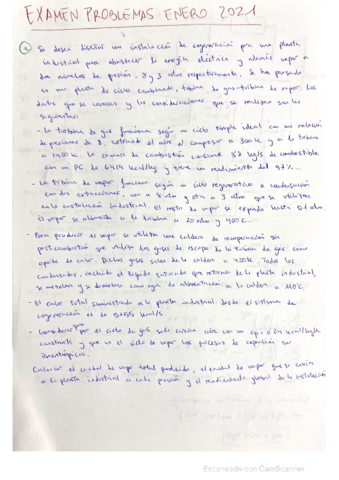 EXAMEN PROBLEMAS ENERO 2021
① Se desea diseñar una instalación de cogeneración para una planta
industrial para abastecer la energía eléctrica y además vapor a
dos niveles de presión, 8 y 3 atm respectivamente. Se ha pensado
en una planta de ciclo combinado, turbina de gas-turbina de vapor. Los
datos que se conocen y las consideraciones que se realizan son las
siguientes:
- La turbina de gas funciona según un ciclo simple ideal con una relación
de presiones de 8, entrando el aire al compresor a 300 K y a la turbina
a 1400 K. La cámara de combustión consume kg/s de combustible
con un PC de kcal/kg y tiene un rendimiento del 97%.
- La turbina de vapor funciona según un ciclo regenerativo a condensación
con dos extracciones, una a 8 atm y otra a 3 atm que se utilizan
en la instalación industrial. El resto de vapor se expande hasta 0.1 atm.
El vapor se alimenta a la turbina a 20 atm y 400°C.
- Para producir el vapor se utiliza una caldera de recuperación sin
postcombustión que utiliza los gases de escape de la turbina de gas como
aporte de calor. Dichos gases salen de la caldera a 400 K. Todos los
condensados, incluido el líquido saturado que retorna de la planta industrial,
se mezclan y se como agua de alimentación a la caldera a 110°C.
- El calor total suministrado a la planta industrial desde el sistema de
cogeneración es de kcal/s.
- Considerar que por el ciclo de gas solo circula aire con un cp = 0'24 kcal/kgK
constante y que en el ciclo de vapor los procesos de expansión son
isentrópicos.
Calcular el caudal de vapor total producido, el caudal de vapor que se envía
a la planta industrial a cada presión y el rendimiento global de la instalación
Escaneado con CamScanner